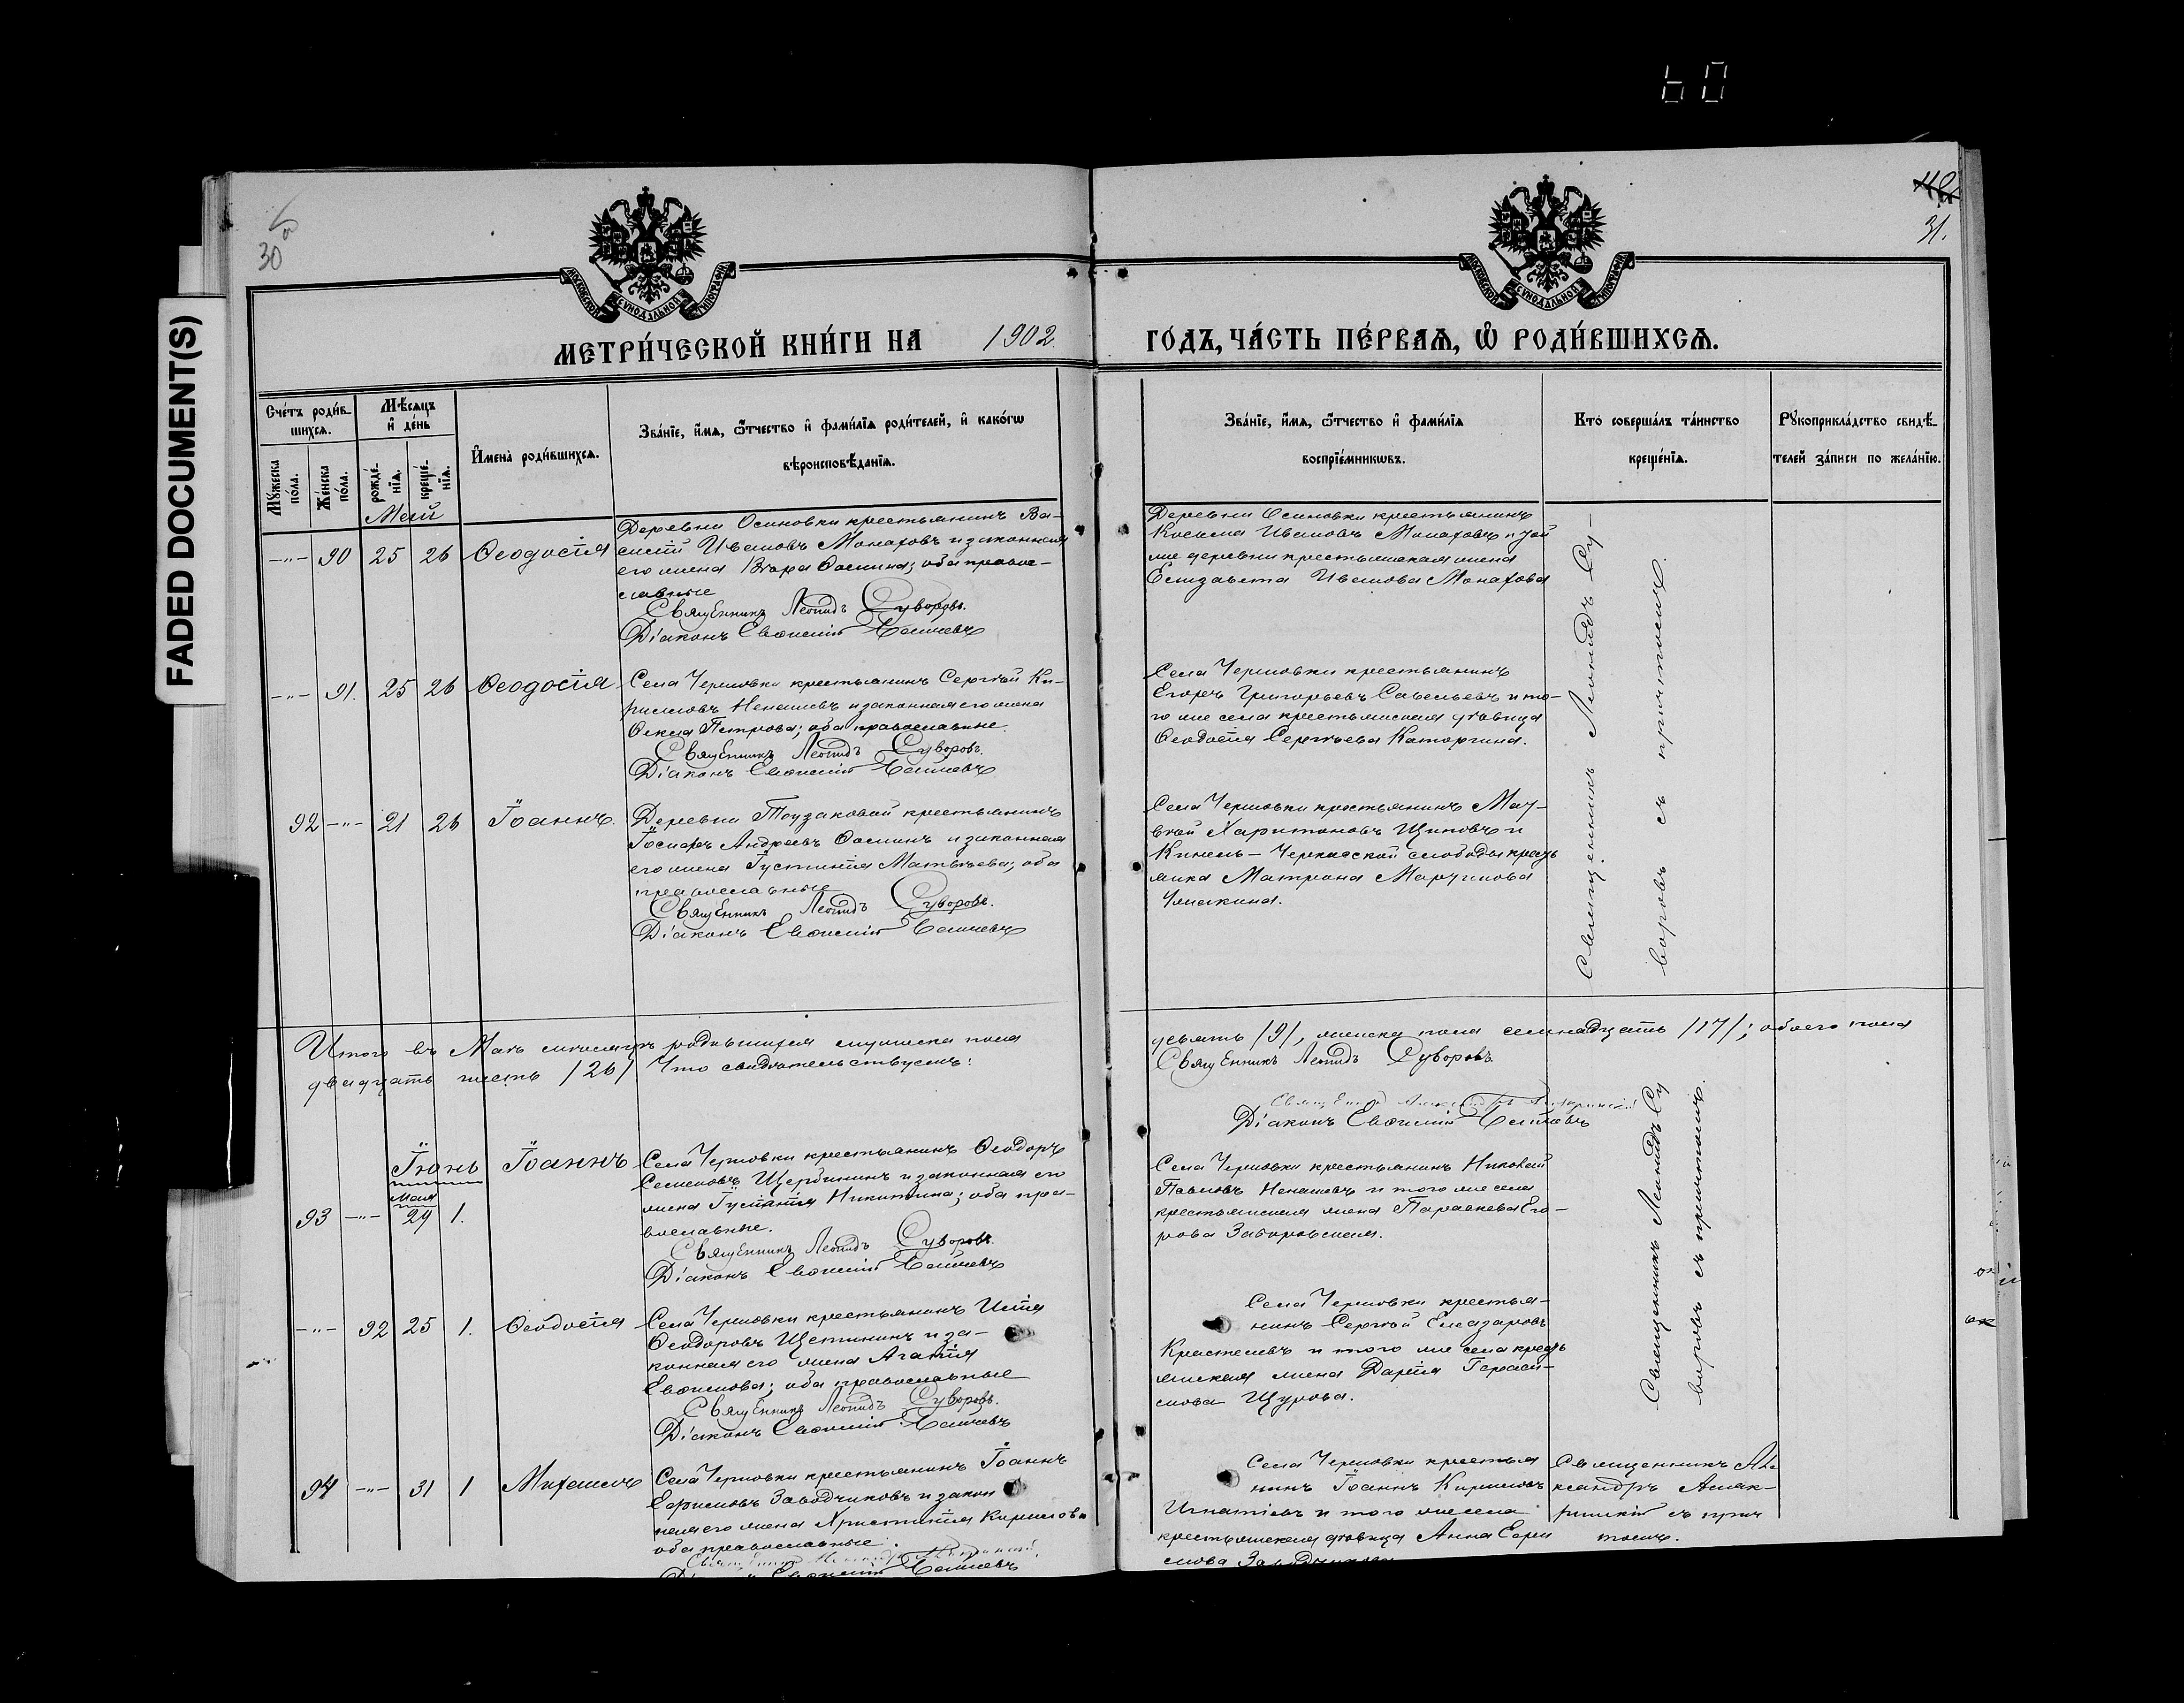 60
FADED DOCUMENT(S)
30
31.
МОСКОВСКОЙ СѴНОДАЛЬНОЙ ТИПОГРАФІИ
МОСКОВСКОЙ СѴНОДАЛЬНОЙ ТИПОГРАФІИ
МЕТРИ́ЧЕСКОЙ КНИ́ГИ НА 1902. ГО́ДЪ, ЧА́СТЬ ПЕ́РВАѦ, Ѽ РОДИ́ВШИХСѦ.
Сче́тъ роди́в-
шихсѧ.
Мꙋ́жеска
по́ла.
Же́нска
по́ла.
Мѣ́сѧцъ
и҆ де́нь
рожде́-
нїѧ.
креще́-
нїѧ.
И҆мена̀ роди́вшихсѧ.
Зва́нїе, и҆́мѧ, ѻ҆́тчество и҆ фами́лїѧ роди́телей, и҆ како́гѡ
вѣроисповѣ́данїѧ.
Зва́нїе, и҆́мѧ, ѻ҆́тчество и҆ фами́лїѧ
воспрїе́мникѡвъ.
Кто̀ соверша́лъ та́инство
креще́нїѧ.
Рꙋкоприкла́дство свидѣ́-
телей за́писи по жела́нїю.
Май
-"- 90 25 26 Ѳеодосія
Деревни Осиновки крестьянинъ Ва-
силій Ивановъ Монаховъ и законная
его жена Ѳомина; оба православ-
славные
Священникъ Леонидъ Суворовъ.
Діаконъ Евѳимій
Деревни Осиновки крестьянинъ
Косьма Ивановъ Монаховъ и той
же деревни крестьянская жена
Елизавета Иванова Монахова
Священникъ Леонидъ Су-
воровъ съ причтомъ.
-"- 91. 25 26 Ѳеодосія
Села Черновки крестьянинъ Сергѣй Ки-
рилловъ Ненашевъ и законная его жена
Ѳекла Петрова; оба православные.
Священникъ Леонидъ Суворовъ.
Діаконъ Евѳимій
Села Черновки крестьянинъ
Егоръ Григорьевъ Савельевъ и то-
го же села крестьянская дѣвица
Ѳеодосія Сергѣева Каторгина.
92 -"- 21 26 Іоаннъ.
Деревни Тоузаковой крестьянинъ
Іосифъ Андреевъ Ѳоминъ и законная
его жена Іустинія Матвѣева; оба
православные
Священникъ Леонидъ Суворовъ.
Діаконъ Евѳимій
Села Черновки крестьянинъ Мат-
вѣй Харитоновъ Щиповъ и
Кинель-Черкасской слободы кресть
янка Матрона
Итого въ Маѣ мѣсяцѣ родившихся мужска пола девять /9/, женска пола семнадцать /17/; обоего пола
двадцать шесть /26/ Что свидѣтельствуемъ: Священникъ Леонидъ Суворовъ.
Діаконъ Евѳимій
Іюнь
Мая
93 -"- 29 1. Іоаннъ
Села Черновки крестьянинъ Ѳеодоръ
Семеновъ Щербининъ и законная его
жена Іустинія Никитина; оба пра-
вославные.
Священникъ Леонидъ Суворовъ.
Діаконъ Евѳимій
Села Черновки крестьянинъ Николай
Павловъ Ненашевъ и того же села
крестьянская жена Параскева Его-
рова Заборовская.
Священникъ Леонидъ Су
воровъ съ причтомъ.
-"- 92 25 1. Ѳеодосія
Села Черновки крестьянинъ Илія
Ѳеодоровъ Щетининъ и за-
конная его жена Агаѳія
Евѳимова; оба православные
Священникъ Леонидъ Суворовъ.
Діаконъ Евѳимій
Села Черновки крестья-
нинъ Сергѣй Елеазаровъ
и того же села кресть
янская жена Дарія Гераси-
мова Щурова.
94 -"- 31 1 Михаилъ
Села Черновки крестьянинъ Іоаннъ
Ефримовъ Заводчиковъ и закон
ная его жена Христинія Кирилова
оба православные.
Села Черновки крестья
нинъ Іоаннъ Кириловъ
Игнатіевъ и того же села
крестьянская дѣвица Анна Ефри
мова Заводчикова
Священникъ Але
ксандръ
съ прич
томъ.